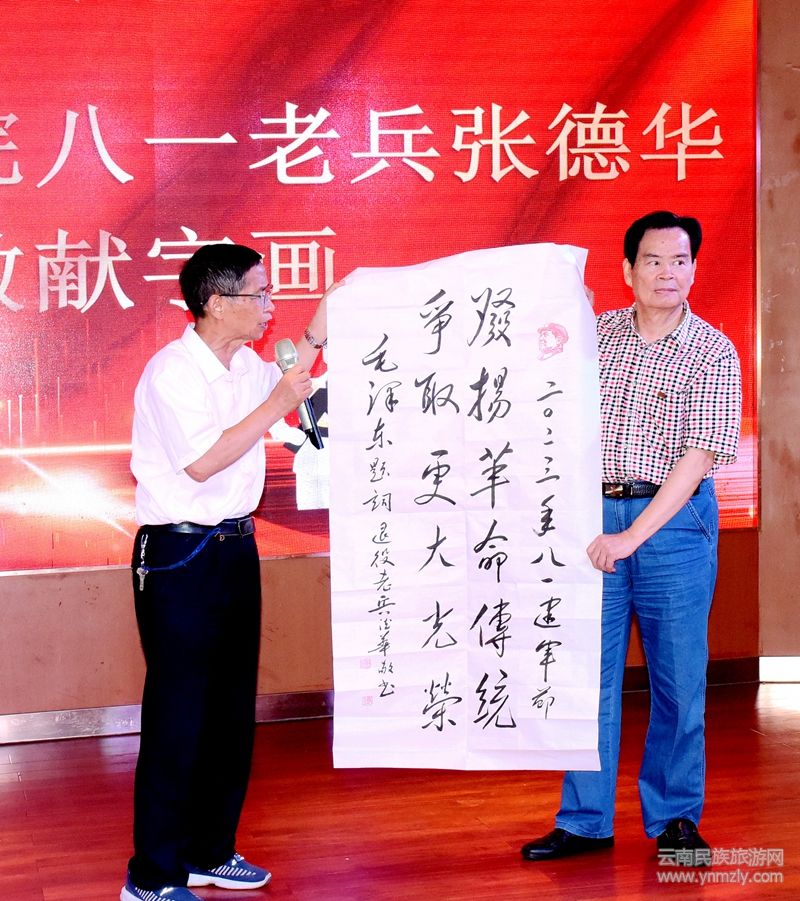 院八一老兵张德华
敬献字画
二〇二三年八一建军节
發揚革命傳統
爭取更大光榮
毛澤东题詞 退役老兵德華敬书
云南民族旅游网
www.ynmzly.com